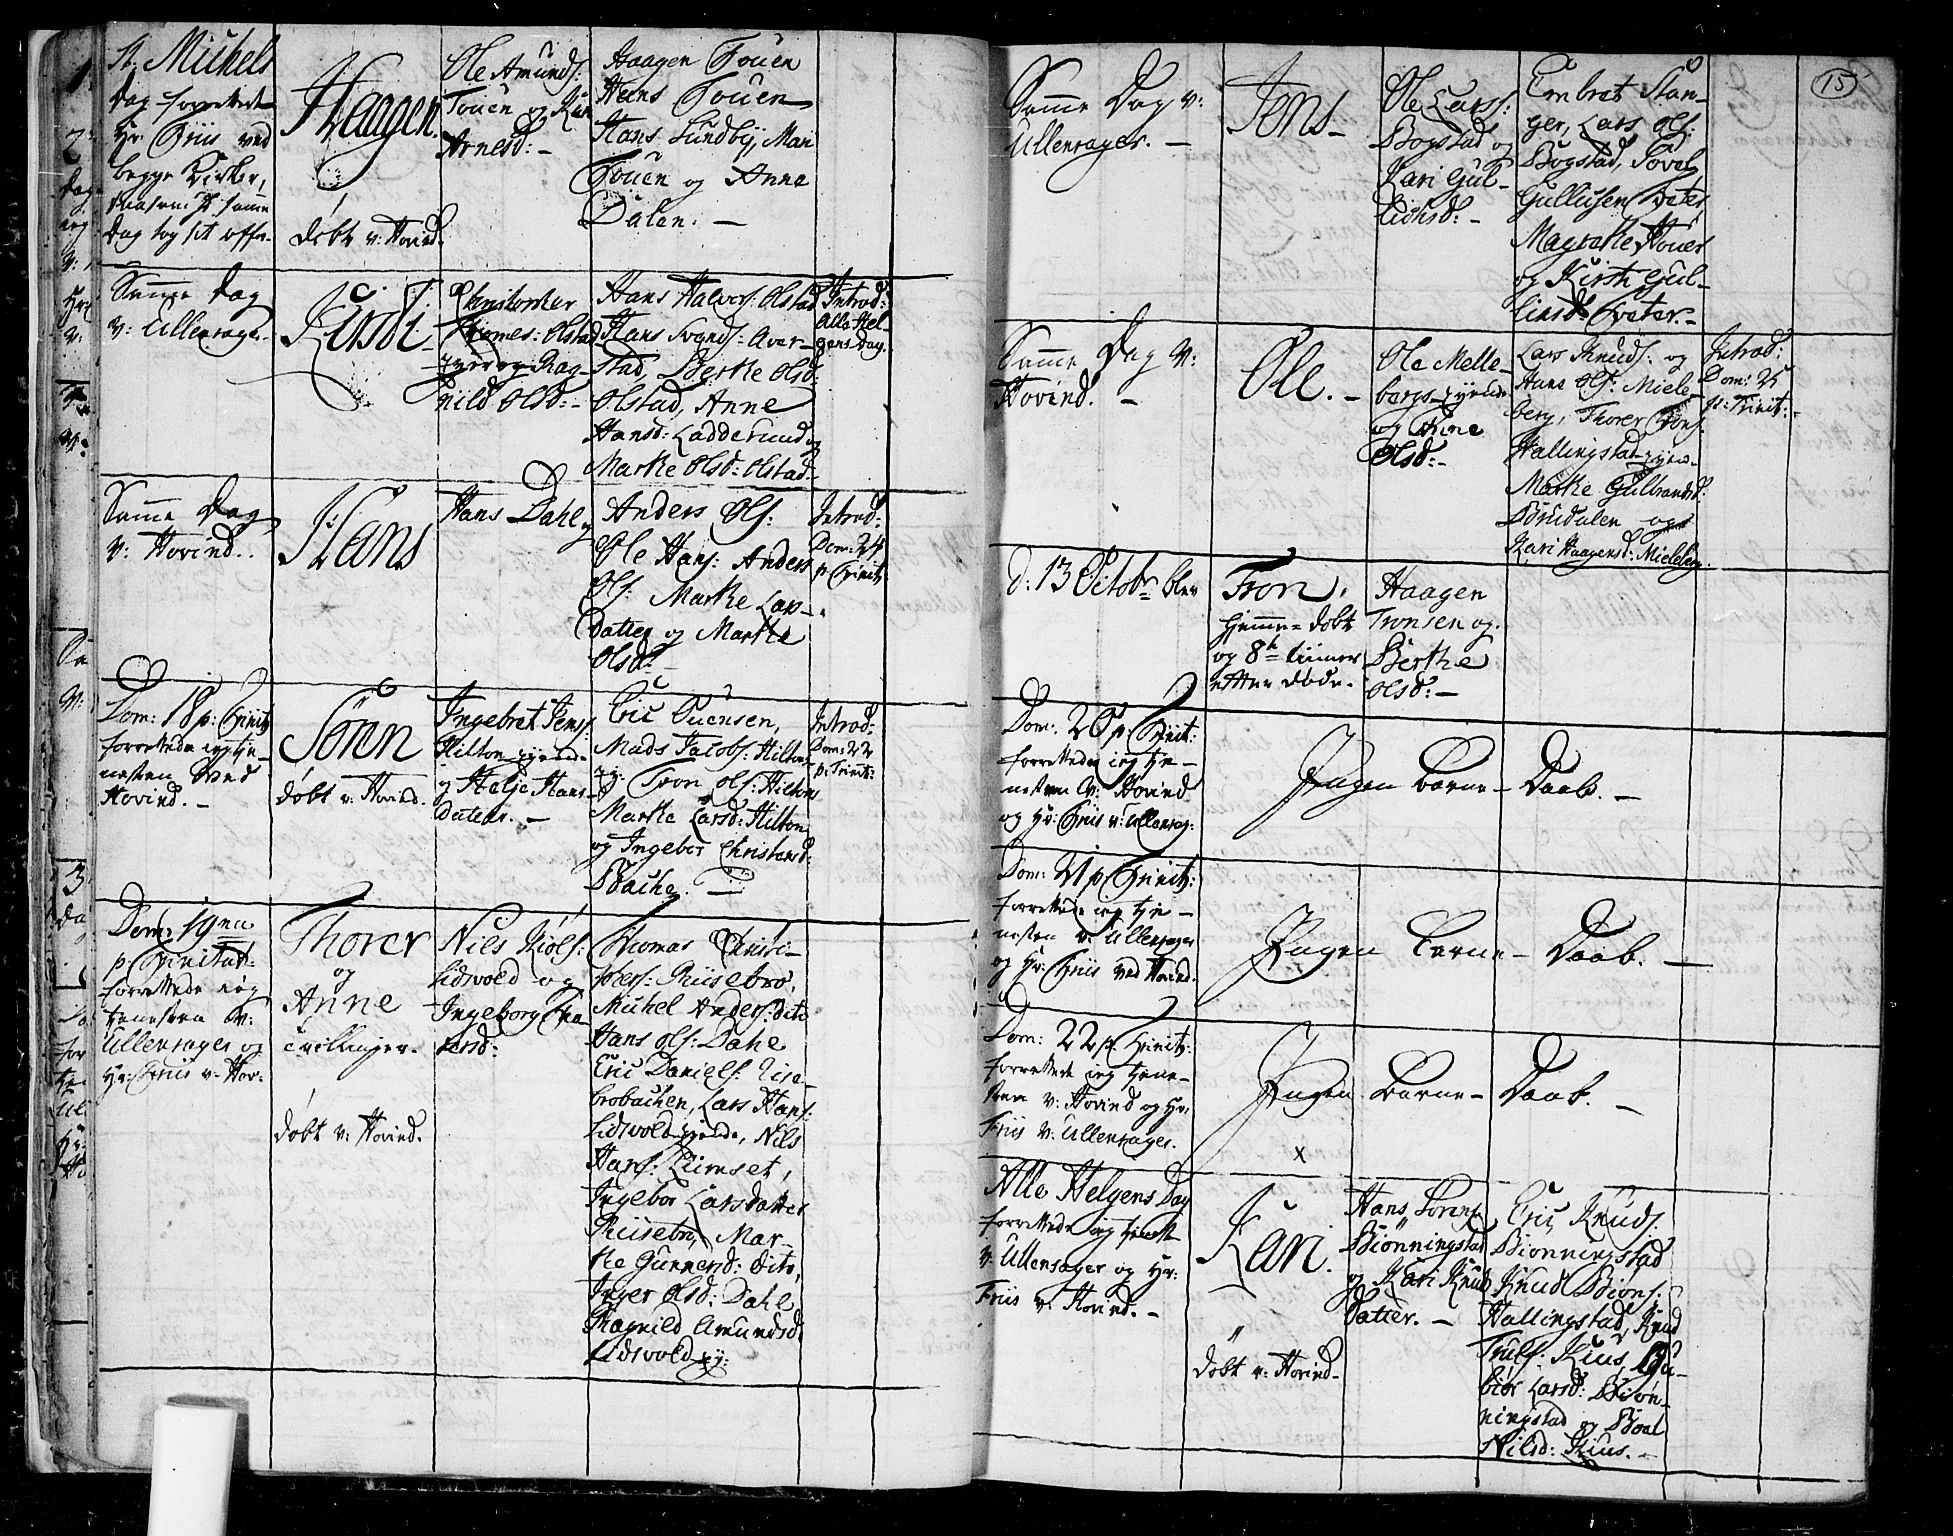 St. Michels
Dag forrettet
Hr Friis ved
begge Kirker,
saasom samme
Dag tog sit offe-
Haagen.
døbt v: Hovind.
Ole Amunds:
Touen og Kari
Arnesd: -
Haagen Touen
Hans Touen
Hans Lundby, Mari
Touen og Anne
Dalen. -
Samme Dag
v: Ullensager.
Kirsti
Christopher
Thomes: Olstad
eyer og Rag-
nild Olsd: -
Hans Halvors: Olstad
Hans Svends: Aver-
stad, Berthe Olsd:
Olstad, Anne
Hansd: Ladderud og
Marthe Olsd: Olstad -
Introd:
Alle Hel-
gens Dag.
Samme Dag
v: Hovind..
Hans
Hans Dahl og
Anders Ols:
Ole Hans: Anders
Ols: Marthe Lars-
Datter og Marthe
Olsd: -
Introd:
Dom: 24
p: Trinit:
Dom: 18 p: Trinit:
forrettede ieg tje-
nesten ved
Hovind. -
Sören
døbt v: Hovind.
Ingebret Jens:
Hilton eyende
og Helje Hans-
datter. -
Eric Evensen,
Mads Jacobs: Hilton
ey: Tron Ols: Hilton
Marthe Larsd: Hilton
og Ingebor Christensd:
Bache. -
Introd:
Dom: 22
p: Trinit:
Dom: 19na
p. Trinitat:
forrettede ieg
tienesten v:
Ullensager og
Hr: Friis v: Hov:
Thorer
og
Anne
Tvillinger.
døbt v: Hovind.
Nils Kiols:
Lidsvold og
Ingeborg
Thomas Christi-
Riisebro,
Michel Anders: dito
Hans Ols: Dahl
Eric Daniels: Riise-
brobachen, Lars Hans:
Lidsvold eyende, Nils
Hans: Liimset,
Ingebor Larsdatter
Riisebro, Mar-
the Gunnersd: dito,
Inger Olsd: Dahl
Ragnild Amundsd:
Lidsvold ey:
15
Samme Dag v:
Ullensager. -
Jens -
Ole Larss:
Bogstad og
Kari Gul-
lichsd: -
Embret Stan-
ger, Lars Ols:
Bogstad, Povel
Gullichsen Sæter
Magrethe Houer
og Kirsti Gul-
lichsd: Sæter. -
Samme Dag v:
Hovind. -
Ole. -
Ole Melle-
bergs-eyende
og Anne
Olsd: -
Lars Knuds: og
Hans Ols: Miele-
berg, Thorer Tons:
Hallingstad eyen-
Marthe Gulbrandsd:
Brudalen og
Kari Haagensd: Mieleberg.
Introd:
Dom: 25
p: Trinit: -
d: 13 Octobr blev
Tron.
hjemme-døbt
og 8te timer
efter døde.
Haagen
Tronsen og
Berthe
Olsd: -
Dom: 20 p: Trinit:
forrettede ieg tje-
nesten v: Hovind
og Hr: Friis v: Ullensag:
Ingen Barne-Daab. -
Dom: 21 p: Trinit:
forrettede ieg tje-
nesten v: Ullensager
og Hr: Friis ved Hovind.
Ingen Barne-Daab. -
Dom: 22 p: Trinit:
forrettede ieg tjene-
sten v: Hovind og Hr:
Friis v: Ullensager.
Ingen Barne-Daab. -
x
Alle Helgens Dag
forrettede ieg tjenest
v: Ullensager og Hr:
Friis v: Hovind. -
Kari.
døbt v: Hovind -
Hans Sörens:
Biönningstad
og Kari Knuds
datter. -
Eric Knuds:
Biönningstad
Knud Biöns:
Hallingstad, Knud
Truls: Kius, Gu-
biör Larsd: Biön-
ningstad og Boel
Nilsd: Kius. -